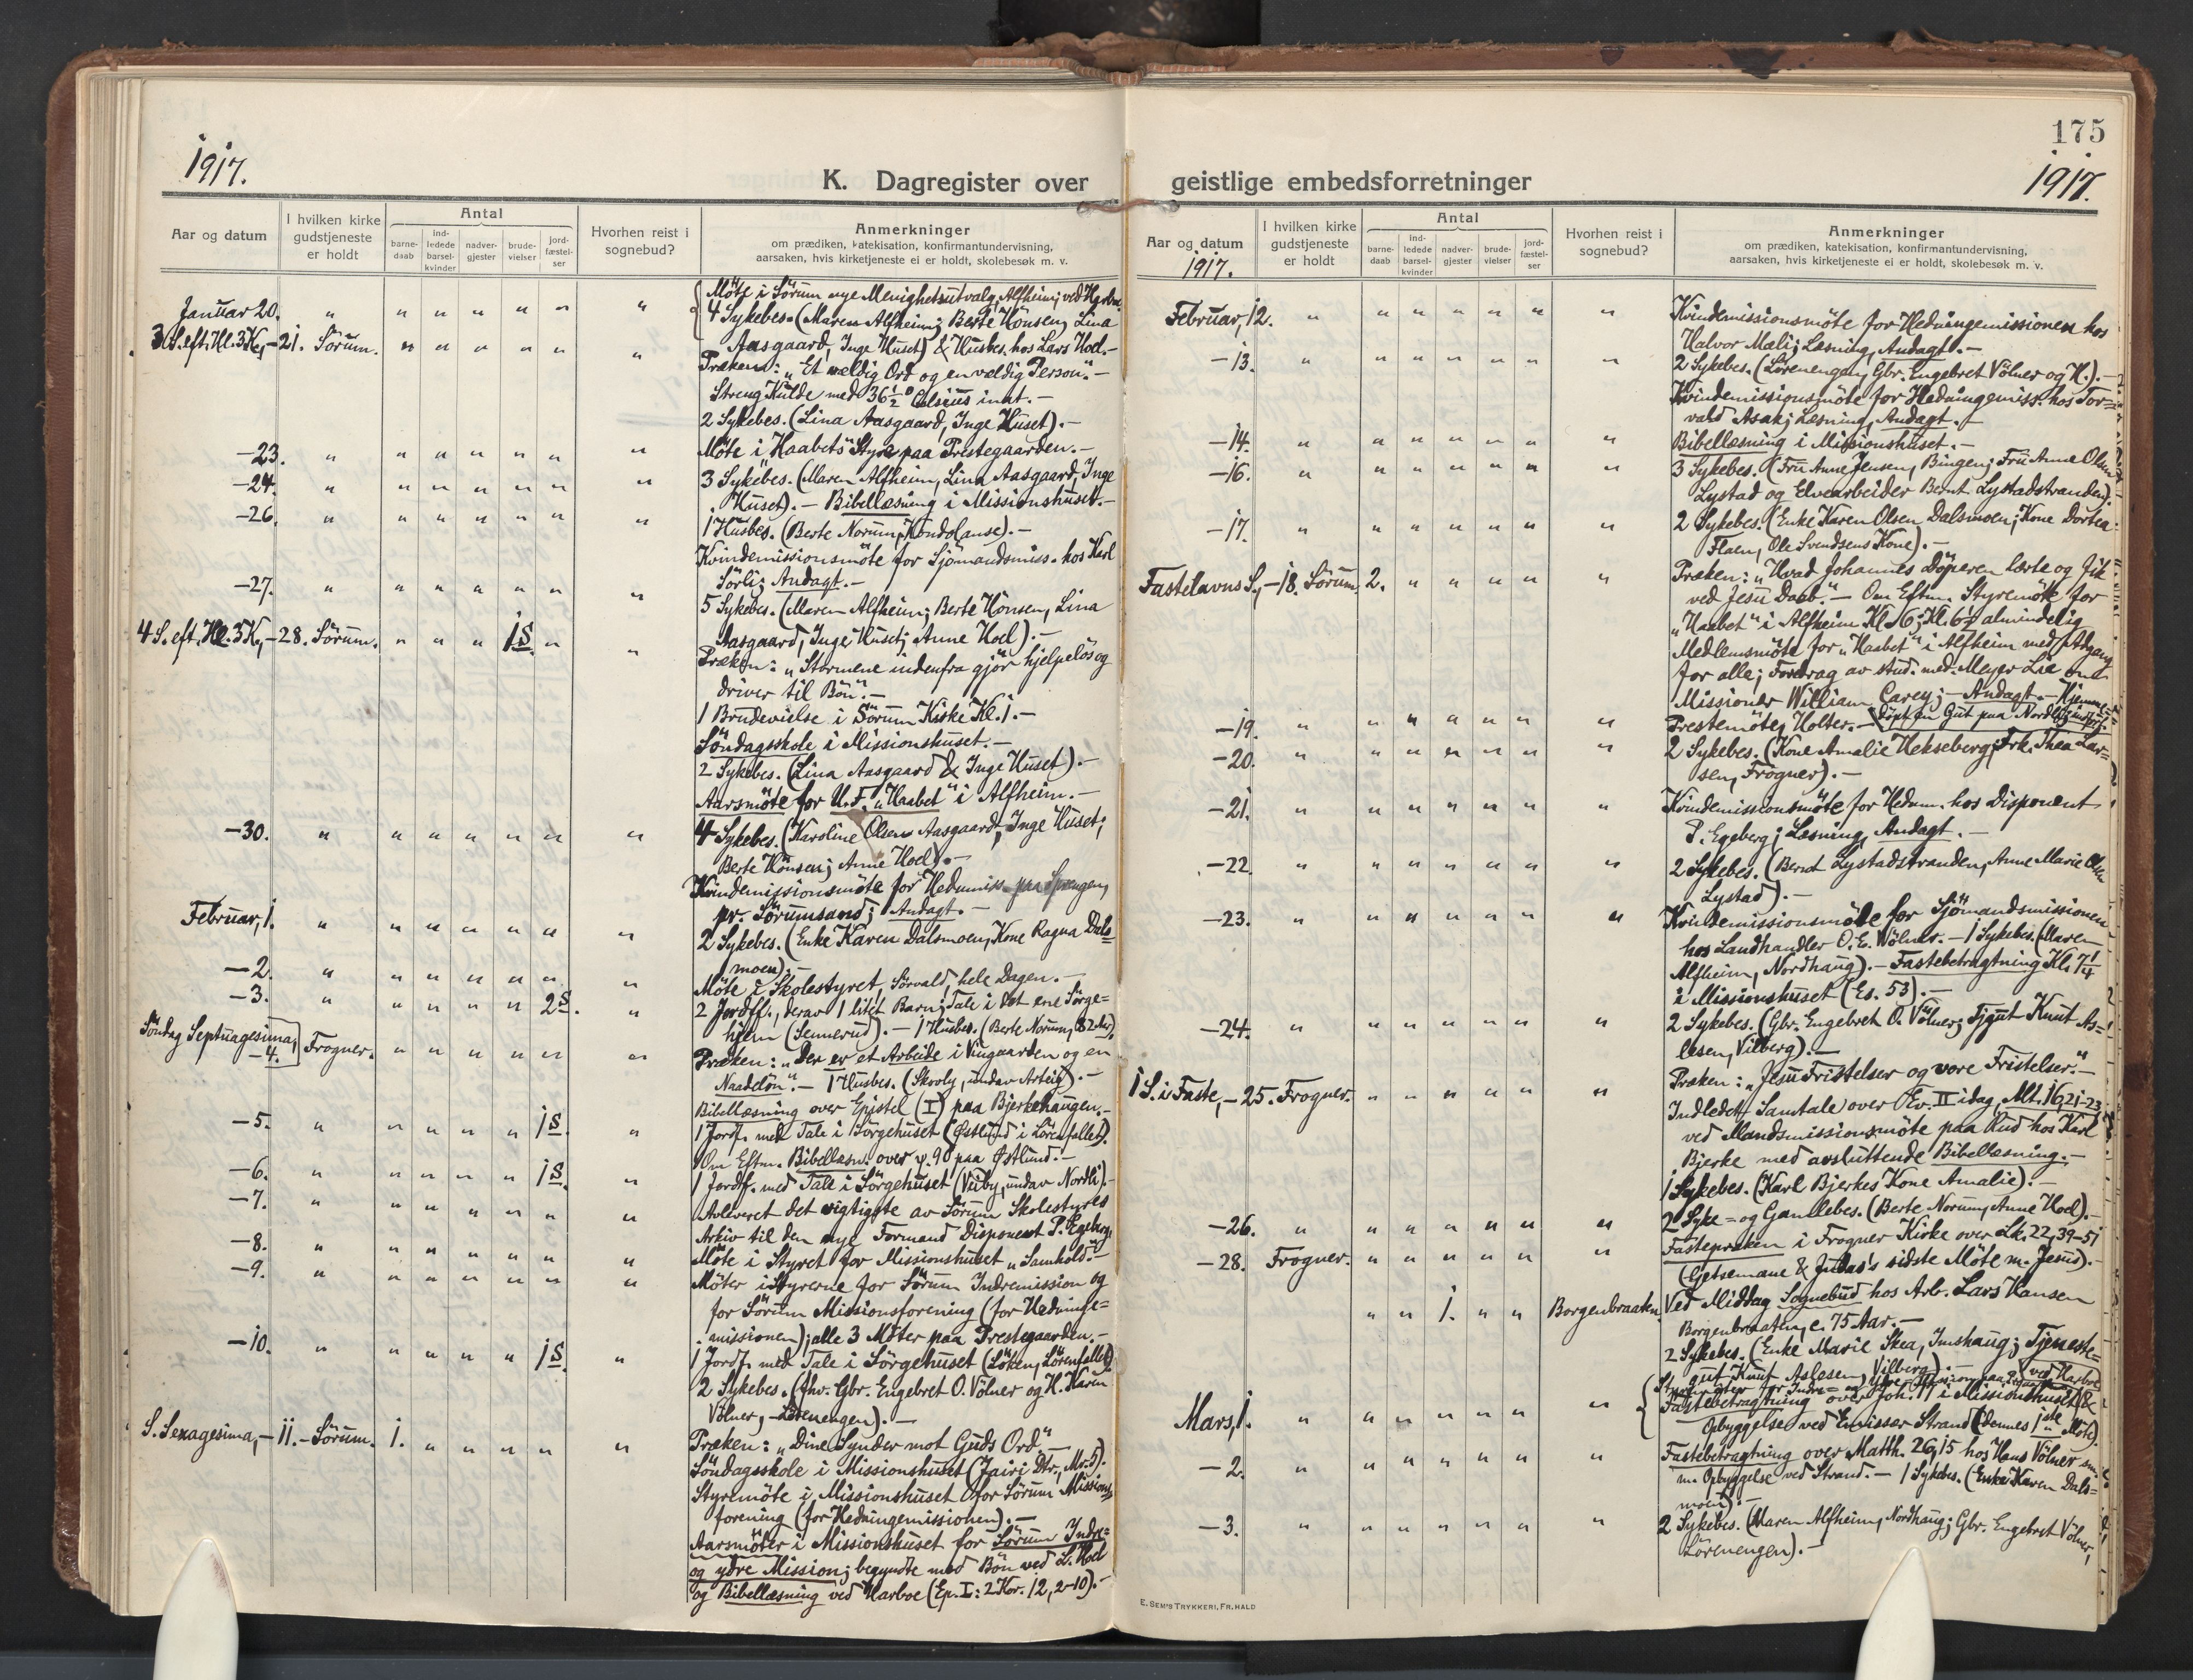 1917.
K. Dagregister over
Aar og datum
I hvilken kirke gudstjeneste er holdt
Antal
barne-daab
ind-ledede barsel-kvinder
nadver-gjester
brude-vielser
jord-fæstel-ser
Hvorhen reist i sognebud?
Anmerkninger
om prædiken, katekisation, konfirmantundervisning,
aarsaken, hvis kirketjeneste ei er holdt, skolebesøk m. v.
Januar 20. " " " " " " "
Möte i Sörum nye Menighetsutvalg, Alfheim; ved
4 Sykebes. (Maren Alfheim; Berte Hönsen, Lina
Aasgaard, Inge Huset) & Husbes. hos Lars Hoel.-
3 S. eft. Hl. 3 K., - 21. Sörum. " " " " " "
Præken: „Et vældig Ord og en vældig Person".-
Streng Kulde med 36½° Celsius inat.-
2 Sykebes. (Lina Aasgaard, Inge Huset).-
-23. " " " " " " "
Möte i „Haabets" Styre paa Prestegaarden.-
-24. " " " " " " "
3 Sykebes. (Maren Alfheim, Lina Aasgaard, Inge
Huset).- Bibellæsning i Missionshuset.-
-26. " " " " " " "
1 Husbes. (Berte Norum, Kondolanse).-
Kvindemissionsmöte for Sjömandsmiss. hos Karl
Sörli; Andagt.-
-27. " " " " " " "
5 Sykebes. (Maren Alfheim; Berte Hönsen, Lina
Aasgaard, Inge Huset; Anne Hoel).-
4 S. eft. Hl. 3 K., - 28. Sörum. " " " 1 S. " "
Præken: „Stormene indenfra gjör hjelpelös og
driver til Bön".-
1 Brudevielse i Sörum Kirke Kl. 1.-
Söndagsskole i Missionshuset.-
2 Sykebes. (Lina Aasgaard & Inge Huset).-
Aarsmöte for U.F. „Haabet" i Alfheim.-
-30. " " " " " " "
4 Sykebes. (Karoline Olsen Aasgaard, Inge Huset;
Berte Hönsen; Anne Hoel).-
Kvindemissionsmöte for Hedmiss. paa Sprengen,
pr. Sörumsand; Andagt.-
Februar, 1. " " " " " " "
2 Sykebes. (Enke Karen Dalsmoen, Kone Ragna Dals=
moen).-
-2. " " " " " " "
Möte i Skolestyret, Sörvald, hele Dagen.-
-3. " " " " " 2 S. "
2 Jordf., derav 1 litet Barn; Tale i det ene Sörge=
hjem (Sennerud).- 1 Husbes. (Berte Norum, 82 Aar).
Söndag Septuagesima, -4. Frogner. " " " " " "
Præken: „Der er et Arbeide i Vingaarden og en
Naadelön".- 1 Husbes. (Skovly, undav Arteig).-
Bibellæsning over Epistel (I) paa Bjerkehaugen.-
-5. " " " " " 1 S. "
1 Jordf. med Tale i Sörgehuset (Østlund i Lörenfallet).
Om Eftm. Bibellæsn. over ψ. 90 paa Østlund.-
-6. " " " " " 1 S. "
1 Jordf. med Tale i Sörgehuset (Viiby, undav Nordli).-
-7. " " " " " " "
Avleveret det vigtigste av Sörum Skolestyres
Arkiv til den nye Formand Disponent P. Egeberg.
-8. " " " " " " "
Möte i Styret for Missionshuset „Samhold".-
-9. " " " " " " "
Möter i Styrerne for Sörum Indremission og
for Sörum Missionsforening (for Hedninge=
missionen); alle 3 Möter paa Prestegaarden.-
-10. " " " " " 1 S. "
1 Jordf. med Tale i Sörgehuset (Löken, Lörenfallet).
2 Sykebes. (fhv. Gbr. Engebret O. Völner og H. Karen
Völner, - Lörenengen).-
S. Sexagesima, - 11. - Sörum. 1. " " " " "
Præken: „Dine Synder mot Guds Ord".-
Söndagsskole i Missionshuset (Jairi Dtr., Mr. 5).
Styremöte i Missionshuset for Sörum Missions=
forening (for Hedningemissionen).-
Aarsmöter i Missionshuset for Sörum Indre=
og ydre Mission; begyndte med Bön ved L. Hoel
og Bibellæsning ved Harboe (Ep. I: 2 Kor. 12, 2-10).-
175
1917.
geistlige embedsforretninger
Aar og datum
1917.
I hvilken kirke gudstjeneste er holdt
Antal
barne-daab
ind-ledede barsel-kvinder
nadver-gjester
brude-vielser
jord-fæstel-ser
Hvorhen reist i sognebud?
Anmerkninger
om prædiken, katekisation, konfirmantundervisning,
aarsaken, hvis kirketjeneste ei er holdt, skolebesøk m. v.
Februar, 12. " " " " " " "
Kvindemissionsmöte for Hedningemissionen hos
Halvor Mæli; Læsning, Andagt.-
-13. " " " " " " "
2 Sykebes. (Lörenengen, Gbr. Engebret Völner og H.).-
Kvindemissionsmöte for Hedningemiss. hos Tor=
vald Asak; Læsning, Andagt.-
-14. " " " " " " "
Bibellæsning i Missionshuset.-
-16. " " " " " " "
3 Sykebes. (Fru Anne Jensen, Bingen; Fru Anne Olsen
Lystad og Elvearbeider Bernt Lystadstranden).
-17. " " " " " " "
2 Sykebes. (Enke Karen Olsen Dalsmoen; Kone Dortea
Flaen, Ole Svendsens Kone).-
Fastelavns S., - 18. Sörum. 2. " " " " "
Præken: „Hvad Johannes Döperen lærte og fik
ved Jesu Daab".- Om Eftm. Styremöte for
„Haabet" i Alfheim Kl. 6; Kl. 6½ almindelig
Medlemsmöte for „Haabet" i Alfheim med Adgang
for alle; Foredrag av stud. med. Meyer Lie om
Missionær William Carey; - Andagt.- Hjemme=
döpt en Gut paa Nordli
-19. " " " " " " "
Prestemöte, Holter.-
-20. " " " " " " "
2 Sykebes. (Kone Amalie Hekseberg; Frk. Thea Lar=
sen, Frogner).-
-21. " " " " " " "
Kvindemissionsmöte for Hedm. hos Disponent
P. Egeberg; Læsning, Andagt.-
-22. " " " " " " "
2 Sykebes. (Bernt Lystadstranden, Anne Marie Olsen
Lystad).-
-23. " " " " " " "
Kvindemissionsmöte for Sjömandsmissionen
hos Landhandler O. E. Völner.- 1 Sykebes. (Maren
Alfheim, Nordhaug).- Fastebetragtning Kl. 7¼
i Missionshuset (Es. 53).-
-24. " " " " " " "
2 Sykebes. (Gbr. Engebret O. Völner; Tjgut Knut As=
lesen, Vilberg).-
1 S. i Faste, - 25. Frogner. " " " " " "
Præken: „Jesu Fristelser og vore Fristelser".-
Indledet Samtale over Ev. II idag, Mt. 16, 21-23
ved Mandsmissionsmöte paa Rud hos Karl
Bjerke med avsluttende Bibellæsning.-
1 Sykebes. (Karl Bjerkes Kone Amalie).-
-26. " " " " " " "
2 Syke= og Gamlebes. (Berte Norum, Anne Hoel).-
-28. Frogner. " " " " " "
Fastepræken i Frogner Kirke over Lk. 22, 39-51
(Getsemane & Judas's sidste Möte m. Jesus).-
" " 1. " " Borgenbraaten
Ved Middag Sognebud hos Arb. Lars Hansen
Borgenbraaten, c. 75 Aar.-
2 Sykebes. (Enke Marie Skea, Imshaug; Tjeneste=
gut Knut Aslesen, Vilberg).-
Mars, 1. " " " " " " "
Fastebetragtning over Joh. 17 i Missionshuset &
Opbyggelse ved Emissær Strand (dennes 1ste Möte).
-2. " " " " " " "
Fastebetragtning over Matth. 26, 15 hos Hans Völner
m. Opbyggelse ved Strand.- 1 Sykebes. (Enke Karen Dals=
moen).-
-3. " " " " " " "
2 Sykebes. (Maren Alfheim, Nordhaug; Gbr. Engebret Völner,
Lörenengen).-
E. SEM'S TRYKKERI, FR.HALD